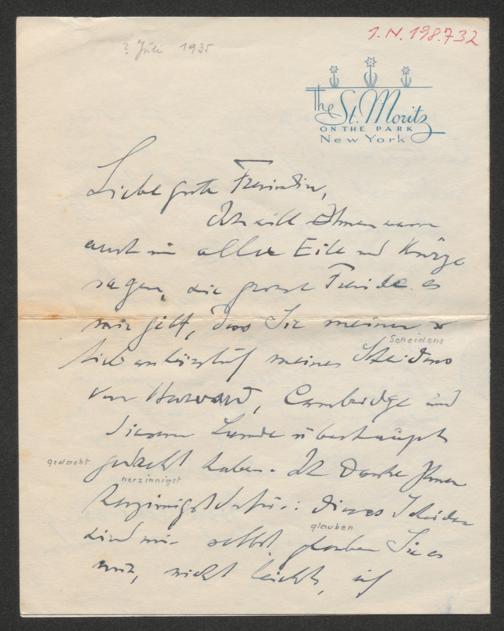 ? Juli 1935
I.N. 198.732
The St. Moritz
ON THE PARK
New York
Liebe gute Freundin,
Ich will Ihnen wenn
auch in aller Eile und Kürze
sagen, wie grosse Freude es
mir gibt, dass Sie meiner
Scheidens
anlässlich meines Scheidens
von Harvard, Cambridge und
diesem Lande überhaupt
gedacht
gedacht haben. Ich danke Ihnen
herzinnigst
herzinnigst dafür: dieses Scheiden
glauben
wird mir selbst, glauben Sie es
mir, nicht leicht, ich